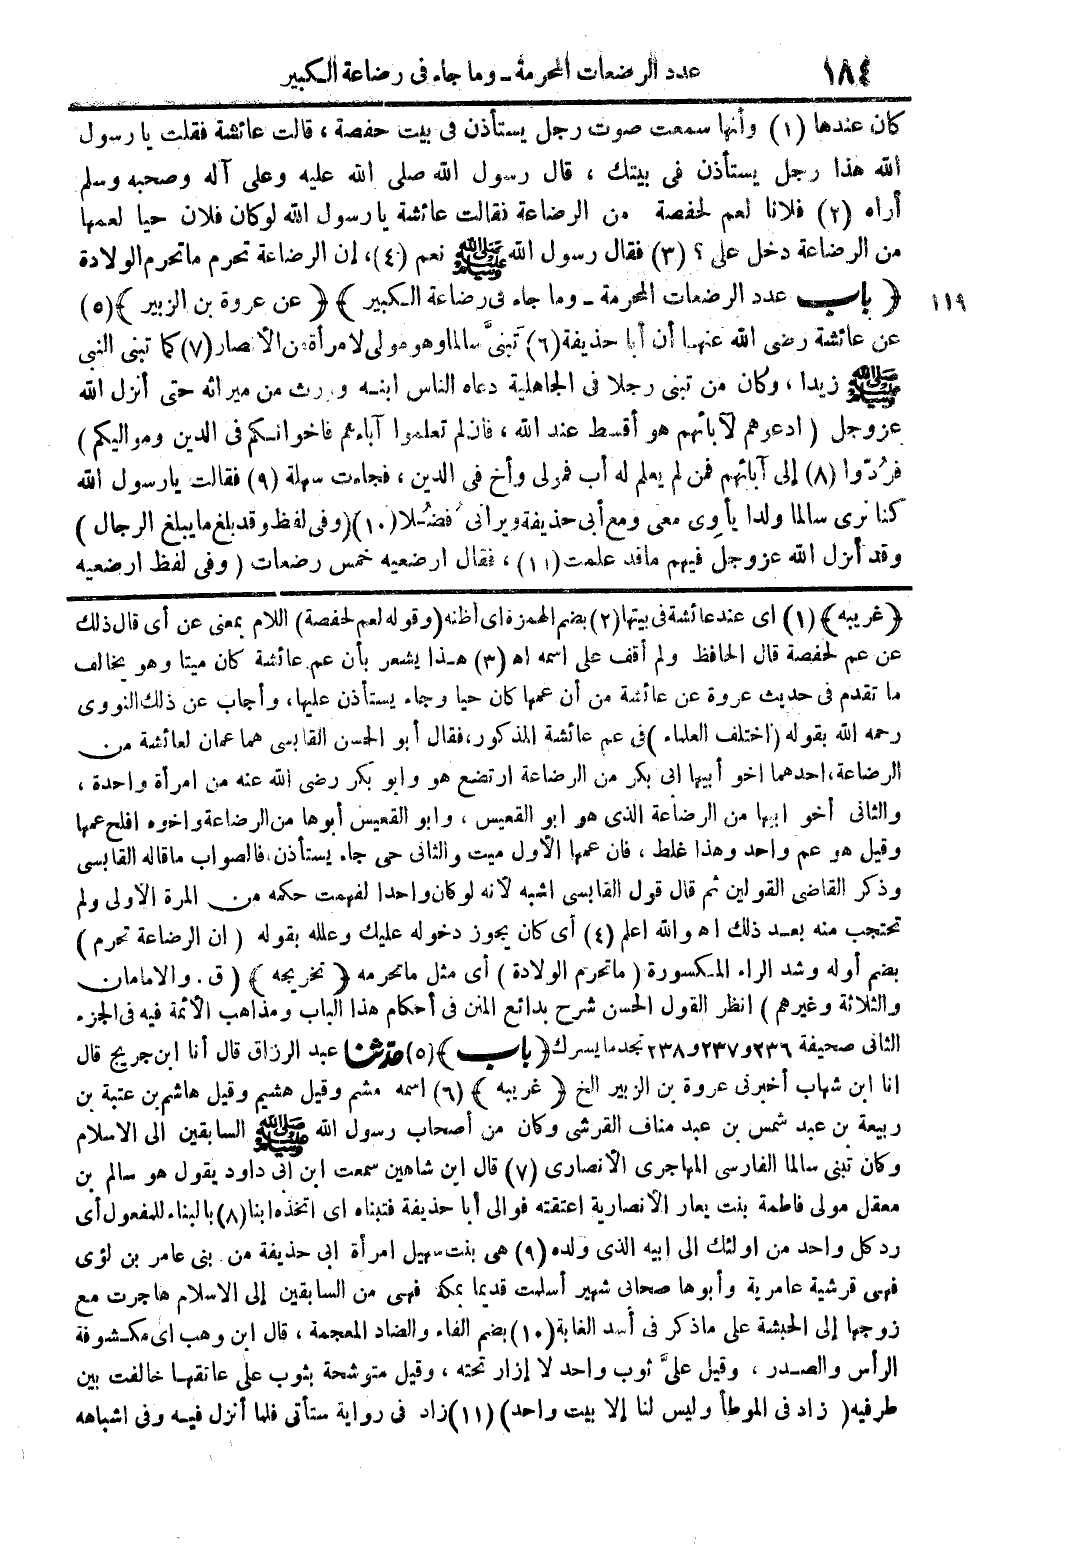 ١٨٤ عدد الرضعات المحرمة ــ وما جاء فى رضاعة الكبير
كان عندها (١) وأنها سمعت صوت رجل يستأذن فى بيت حفصة ، قالت عائشة فقلت يا رسول
الله هذا رجل يستأذن فى بيتك ، قال رسول الله صلى الله عليه وعلى آله وصحبه وسلم
أراه (٢) فلانا لعم لحفصة من الرضاعة فقالت عائشة يا رسول الله لو كان فلان حيا لعمها
من الرضاعة دخل على ؟ (٣) فقال رسول الله ﷺ نعم (٤)، إن الرضاعة تحرم ما تحرم الولادة
﴿ باب عدد الرضعات المحرمة ــ وما جاء فى رضاعة الكبير ﴾ ﴿ عن عروة بن الزبير ﴾ (٥) ١١٩
عن عائشة رضى الله عنها أن أبا حذيفة (٦) تبنىَّ سالما وهو مولى لامرأة من الأنصار (٧) كما تبنى النبى
ﷺ زيدا ، وكان من تبنى رجلا فى الجاهلية دعاه الناس ابنه وورث من ميراثه حتى أنزل الله
عز وجل ( ادعوهم لآبائهم هو أقسط عند الله ، فان لم تعلموا آباءهم فاخوانكم فى الدين ومواليكم )
فرُدّوا (٨) إلى آبائهم فمن لم يعلم له أب فمولى وأخ فى الدين ، فجاءت سهلة (٩) فقالت يا رسول الله
كنا نرى سالما ولدا يأوِى معى ومع أبى حذيفة ويرانى فضُلا (١٠) (وفى لفظ وقد بلغ ما يبلغ الرجال )
وقد أنزل الله عز وجل فيهم ما قد علمت (١١) ، فقال ارضعيه خمس رضعات ( وفى لفظ ارضعيه
﴿غريبه﴾ (١) اى عند عائشة فى بيتها (٢) بضم الهمزة اى أظنه (وقوله لعم لحفصة) اللام بمعنى عن أى قال ذلك
عن عم لحفصة قال الحافظ ولم أقف على اسمه اه (٣) هذا يشعر بأن عم عائشة كان ميتا وهو يخالف
ما تقدم فى حديث عروة عن عائشة من أن عمها كان حيا وجاء يستأذن عليها، وأجاب عن ذلك النووى
رحمه الله بقوله (اختلف العلماء) فى عم عائشة المذكور، فقال أبو الحسن القابسى هما عمان لعائشة من
الرضاعة، احدهما اخو أبيها ابى بكر من الرضاعة ارتضع هو وابو بكر رضى الله عنه من امرأة واحدة ،
والثانى أخو ابيها من الرضاعة الذى هو ابو القعيس ، وابو القعيس أبوها من الرضاعة واخوه افلح عمها
وقيل هو عم واحد وهذا غلط ، فان عمها الأول ميت والثانى حى جاء يستأذن، فالصواب ما قاله القابسى
وذكر القاضى القولين ثم قال قول القابسى اشبه لأنه لو كان واحدا لفهمت حكمه من المرة الأولى ولم
تحتجب منه بعد ذلك اه والله اعلم (٤) أى كان يجوز دخوله عليك وعلله بقوله ( ان الرضاعة تحرم )
بضم أوله وشد الراء المكسورة ( ما تحرم الولادة ) أى مثل ما تحرمه ﴿ تخريجه ﴾ ( ق . والامامان
والثلاثة وغيرهم ) انظر القول الحسن شرح بدائع المنن فى أحكام هذا الباب ومذاهب الأئمة فيه فى الجزء
الثانى صحيفة ٢٣٦ و ٢٣٧ و ٢٣٨ تجد ما يسرك ﴿ باب ﴾ (٥) حدثنا عبد الرزاق قال أنا ابن جريج قال
انا ابن شهاب أخبرنى عروة بن الزبير الخ ﴿ غريبه ﴾ (٦) اسمه مهشم وقيل هشيم وقيل هاشم بن عتبة بن
ربيعة بن عبد شمس بن عبد مناف القرشى وكان من أصحاب رسول الله ﷺ السابقين الى الاسلام
وكان تبنى سالما الفارسى المهاجرى الأنصارى (٧) قال ابن شاهين سمعت ابن ابى داود يقول هو سالم بن
معقل مولى فاطمة بنت يعار الأنصارية اعتقته فوالى أبا حذيفة فتبناه اى اتخذه ابنا (٨) بالبناء للمفعول أى
رد كل واحد من اولئك الى ابيه الذى ولده (٩) هى بنت سهيل امرأة ابى حذيفة من بنى عامر بن لؤى
فهى قرشية عامرية وأبوها صحابى شهير أسلمت قديما بمكة فهى من السابقين إلى الاسلام هاجرت مع
زوجها إلى الحبشة على ما ذكر فى أسد الغابة (١٠) بضم الفاء والضاد المعجمة ، قال ابن وهب اى مكشوفة
الرأس والصدر ، وقيل علىَّ ثوب واحد لا إزار تحته ، وقيل متوشحة بثوب على عاتقها خالفت بين
طرفيه ( زاد فى الموطأ وليس لنا إلا بيت واحد) (١١) زاد فى رواية ستأتى فلما أنزل فيه وفى اشباهه